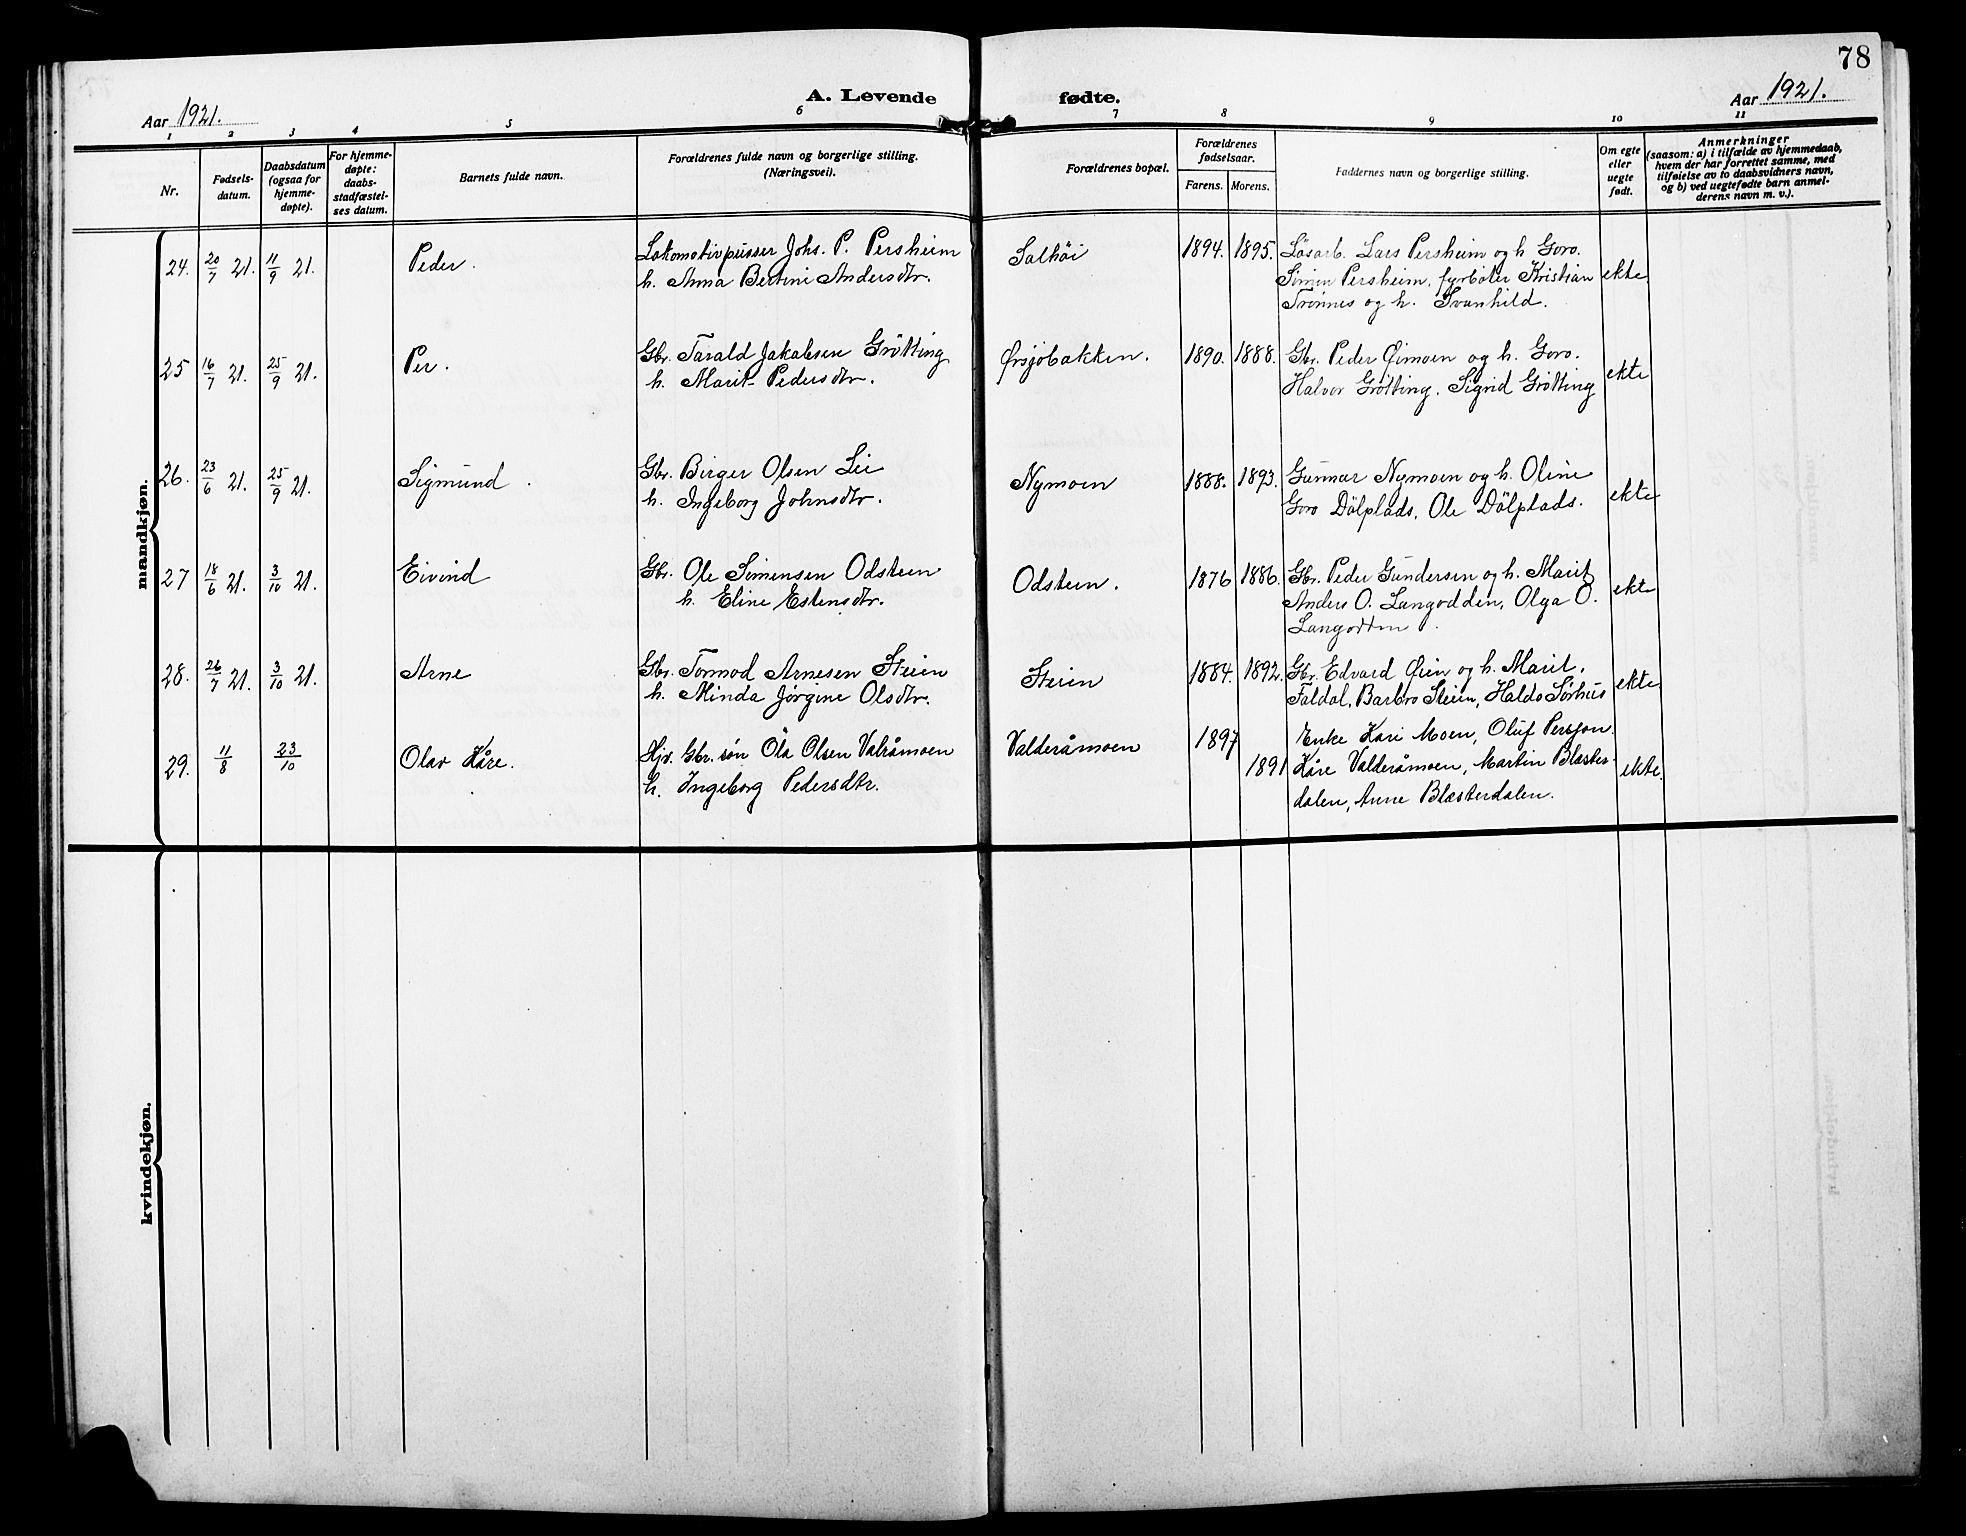 78
A. Levende fødte.
Aar 1921.
Aar 1921.
1 2 3 4 5 6 7 8 9 10 11
Nr.
Fødsels-
datum.
Daabsdatum
(ogsaa for
hjemme-
døpte).
For hjemme-
døpte:
daabs-
stadfæstel-
ses datum.
Barnets fulde navn.
Forældrenes fulde navn og borgerlige stilling.
(Næringsvei).
Forældrenes bopæl.
Forældrenes
fødselsaar.
Farens. Morens.
Faddernes navn og borgerlige stilling.
Om egte
eller
uegte
født.
Anmerkninger
(saasom: a) i tilfælde av hjemmedaab,
hvem der har forrettet samme, med
tilføielse av to daabsvidners navn,
og b) ved uegtefødte barn anmel-
derens navn m. v.).
mandkjøn.
24. 20/7 21. 11/9 21. Peder. Lokomotivpusser Johs. P. Persheim
h. Anna Bertine Andersdtr.
Salhöi 1894. 1895. Lösarb. Lars Persheim og h Goro.
Simen Persheim, fyrböter Kristian
Trönnes og h. Svanhild.
ekte
25 16/7 21. 25/9 21. Per. Gbr. Tarald Jakobsen Grötting
h. Marit Pedersdtr.
Örsjöbakken. 1890. 1888. Gbr. Peder Öimoen og h. Goro.
Halvor Grötting. Sigrid Grötting
ekte
26. 23/6 21. 25/9 21. Sigmund. Gbr. Birger Olsen Lie
h. Ingeborg Johnsdtr.
Nymoen 1888. 1893. Gunnar Nymoen og h. Oline
Goro Dölplads, Ole Dölplads.
ekte
27 18/6 21. 3/10 21. Eivind Gbr. Ole Simensen Odsteen
h. Eline Estensdtr.
Odsteen. 1876 1886. Gbr. Peder Gundersen og h. Marit
Anders O. Langodden, Olga O.
Langodden.
ekte
28. 26/7 21. 3/10 21. Arne Gbr. Tormod Arnesen Steien
h. Minda Jörgine Olsdtr.
Steien 1884. 1892. Gbr. Edvard Öien og h. Marit.
Faldal, Barbro Steien, Haldo Sörhus
ekte
29. 11/8 23/10 Olav Kåre. Hjv. Gbr. sön Ola Olsen Valråmoen
h. Ingeborg Pedersdtr.
Valderåmoen 1897 1891 Enke Kari Moen, Oluf Persjon.
Kåre Valderåmoen, Martin Blæster-
dalen, Anne Blæsterdalen.
ekte.
kvindekjøn.